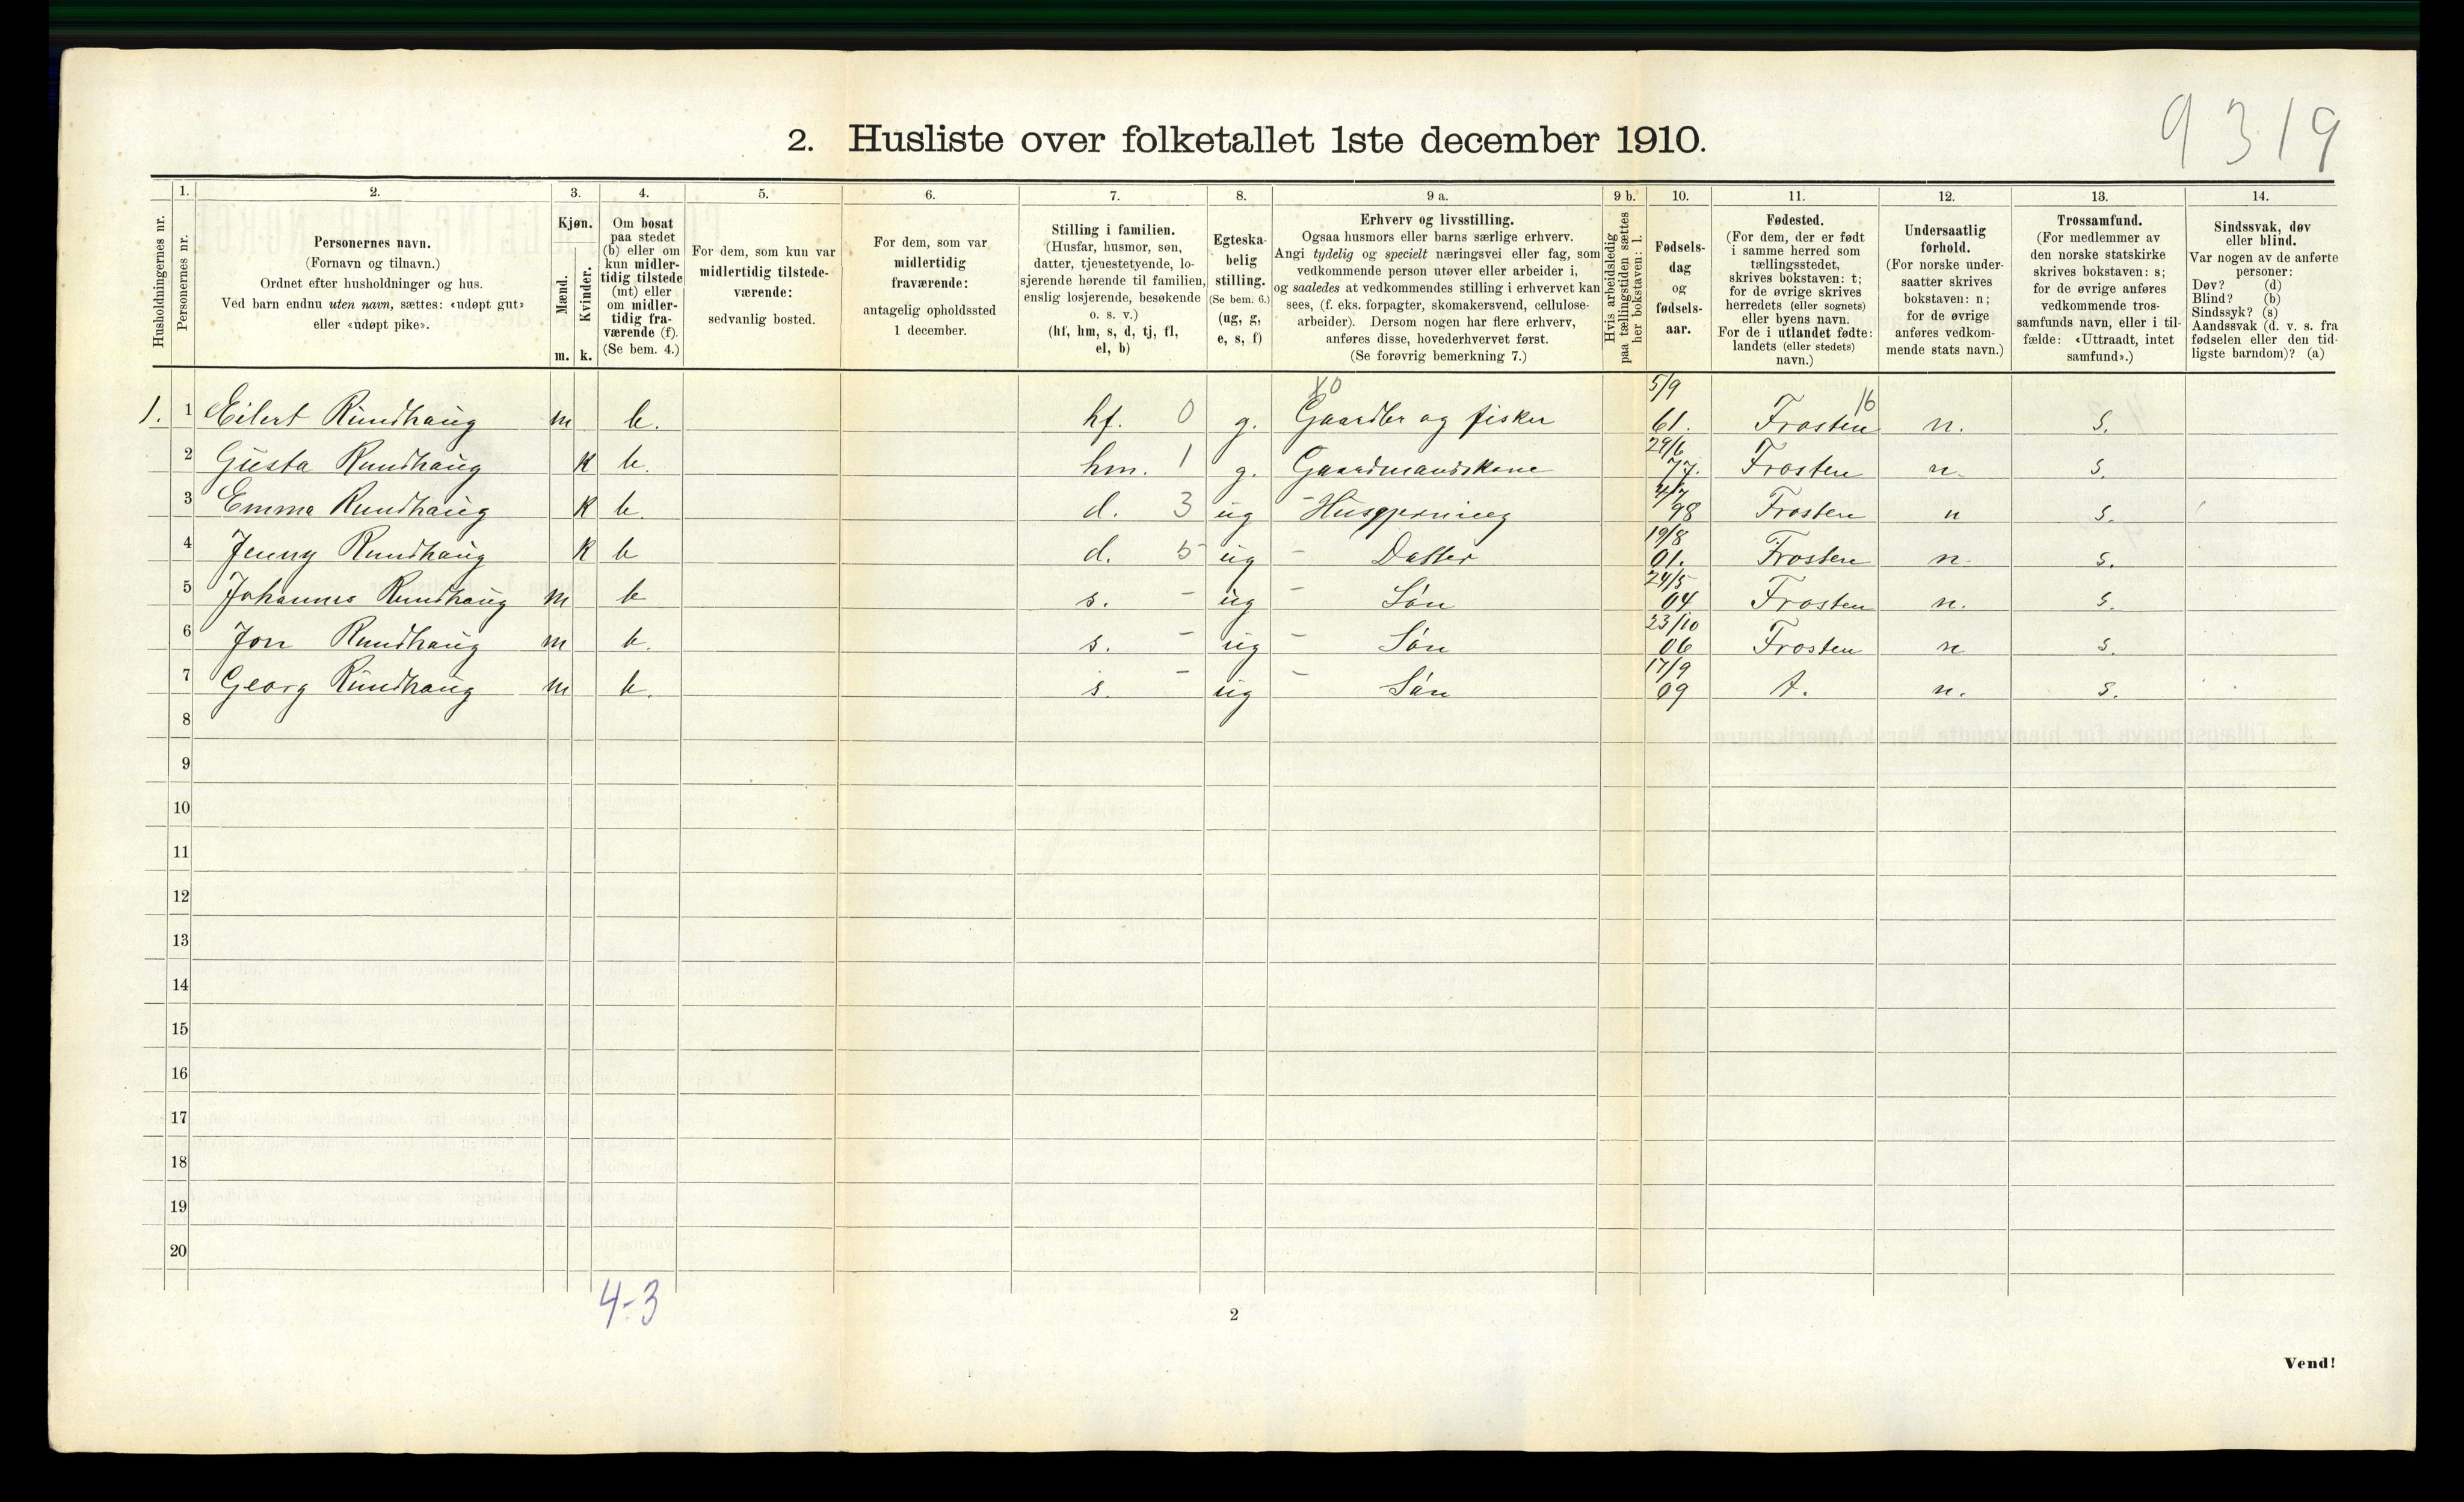 9319
2. Husliste over folketallet 1ste december 1910.
Husholdningernes nr.
1.
Personernes nr.
2.
Personernes navn.
(Fornavn og tilnavn.)
Ordnet efter husholdninger og hus.
Ved barn endnu uten navn, sættes: «udøpt gut»
eller «udøpt pike».
3.
Kjøn.
Mænd.
Kvinder.
m. k.
4.
Om bosat
paa stedet
(b) eller om
kun midler-
tidig tilstede
(mt) eller
om midler-
tidig fra-
værende (f).
(Se bem. 4.)
5.
For dem, som kun var
midlertidig tilstede-
værende:
sedvanlig bosted.
6.
For dem, som var
midlertidig
fraværende:
antagelig opholdssted
1 december.
7.
Stilling i familien.
(Husfar, husmor, søn,
datter, tjenestetyende, lo-
sjerende hørende til familien,
enslig losjerende, besøkende
o. s. v.)
(hf, hm, s, d, tj, fl,
el, b)
8.
Egteska-
belig
stilling.
(Se bem. 6.)
(ug, g,
e, s, f)
9 a.
Erhverv og livsstilling.
Ogsaa husmors eller barns særlige erhverv.
Angi tydelig og specielt næringsvei eller fag, som
vedkommende person utøver eller arbeider i,
og saaledes at vedkommendes stilling i erhvervet kan
sees, (f. eks. forpagter, skomakersvend, cellulose-
arbeider). Dersom nogen har flere erhverv,
anføres disse, hovederhvervet først.
(Se forøvrig bemerkning 7.)
9 b.
Hvis arbeidsledig
paa tællingstiden sættes
her bokstaven: l.
10.
Fødsels-
dag
og
fødsels-
aar.
11.
Fødested.
(For dem, der er født
i samme herred som
tællingsstedet,
skrives bokstaven: t;
for de øvrige skrives
herredets (eller sognets)
eller byens navn.
For de i utlandet fødte:
landets (eller stedets)
navn.)
12.
Undersaatlig
forhold.
(For norske under-
saatter skrives
bokstaven: n;
for de øvrige
anføres vedkom-
mende stats navn.)
13.
Trossamfund.
(For medlemmer av
den norske statskirke
skrives bokstaven: s;
for de øvrige anføres
vedkommende tros-
samfunds navn, eller i til-
fælde: «Uttraadt, intet
samfund».)
14.
Sindssvak, døv
eller blind.
Var nogen av de anførte
personer:
Døv? (d)
Blind? (b)
Sindssyk? (s)
Aandssvak (d. v. s. fra
fødselen eller den tid-
ligste barndom)? (a)
1. 1 Eilert Rundhaug m b. hf. 0 g. Gaardbr og fisker 5/9 61. Frosten 16 n. s.
2 Gusta Rundhaug K b. hm. 1 g. Gaardmandskone 29/6 77. Frosten n. s.
3 Emma Rundhaug K b. d. 3 ug - Husgjerning 4/7 98 Frosten n s.
4 Jenny Rundhaug K b d. 5 ug - Datter 19/8 01. Frosten n. s.
5 Johannes Rundhaug m b s. - ug - Søn 24/5 04 Frosten n. s.
6 Jon Rundhaug m b. s. - ug - Søn 23/10 06 Frosten n s.
7 Georg Rundhaug m b. s. - ug - Søn 17/9 09 t. n. s.
8
9
10
11
12
13
14
15
16
17
18
19
20
4-3
2
Vend!